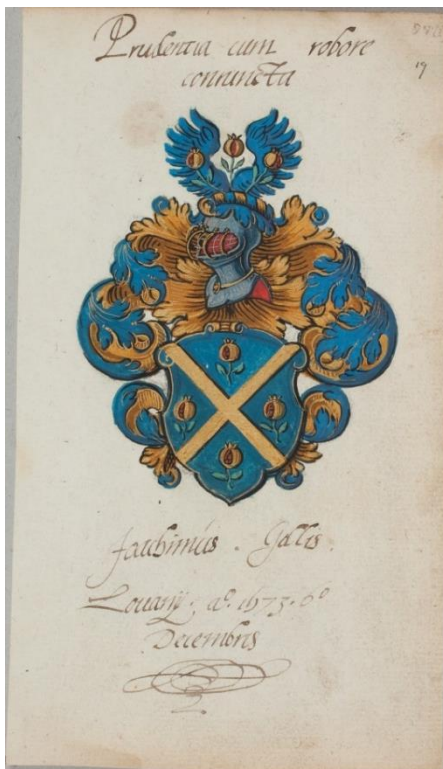 Prudentia cum robore
coniuncta
19
Joachimus . Gillis .
Louanij . aº. 1573 . 6º
Decembris